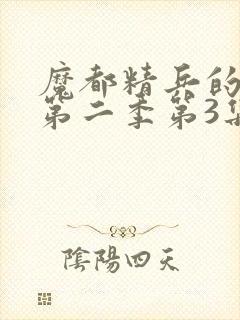 魔都精兵的
第二季第3集
陰陽四天